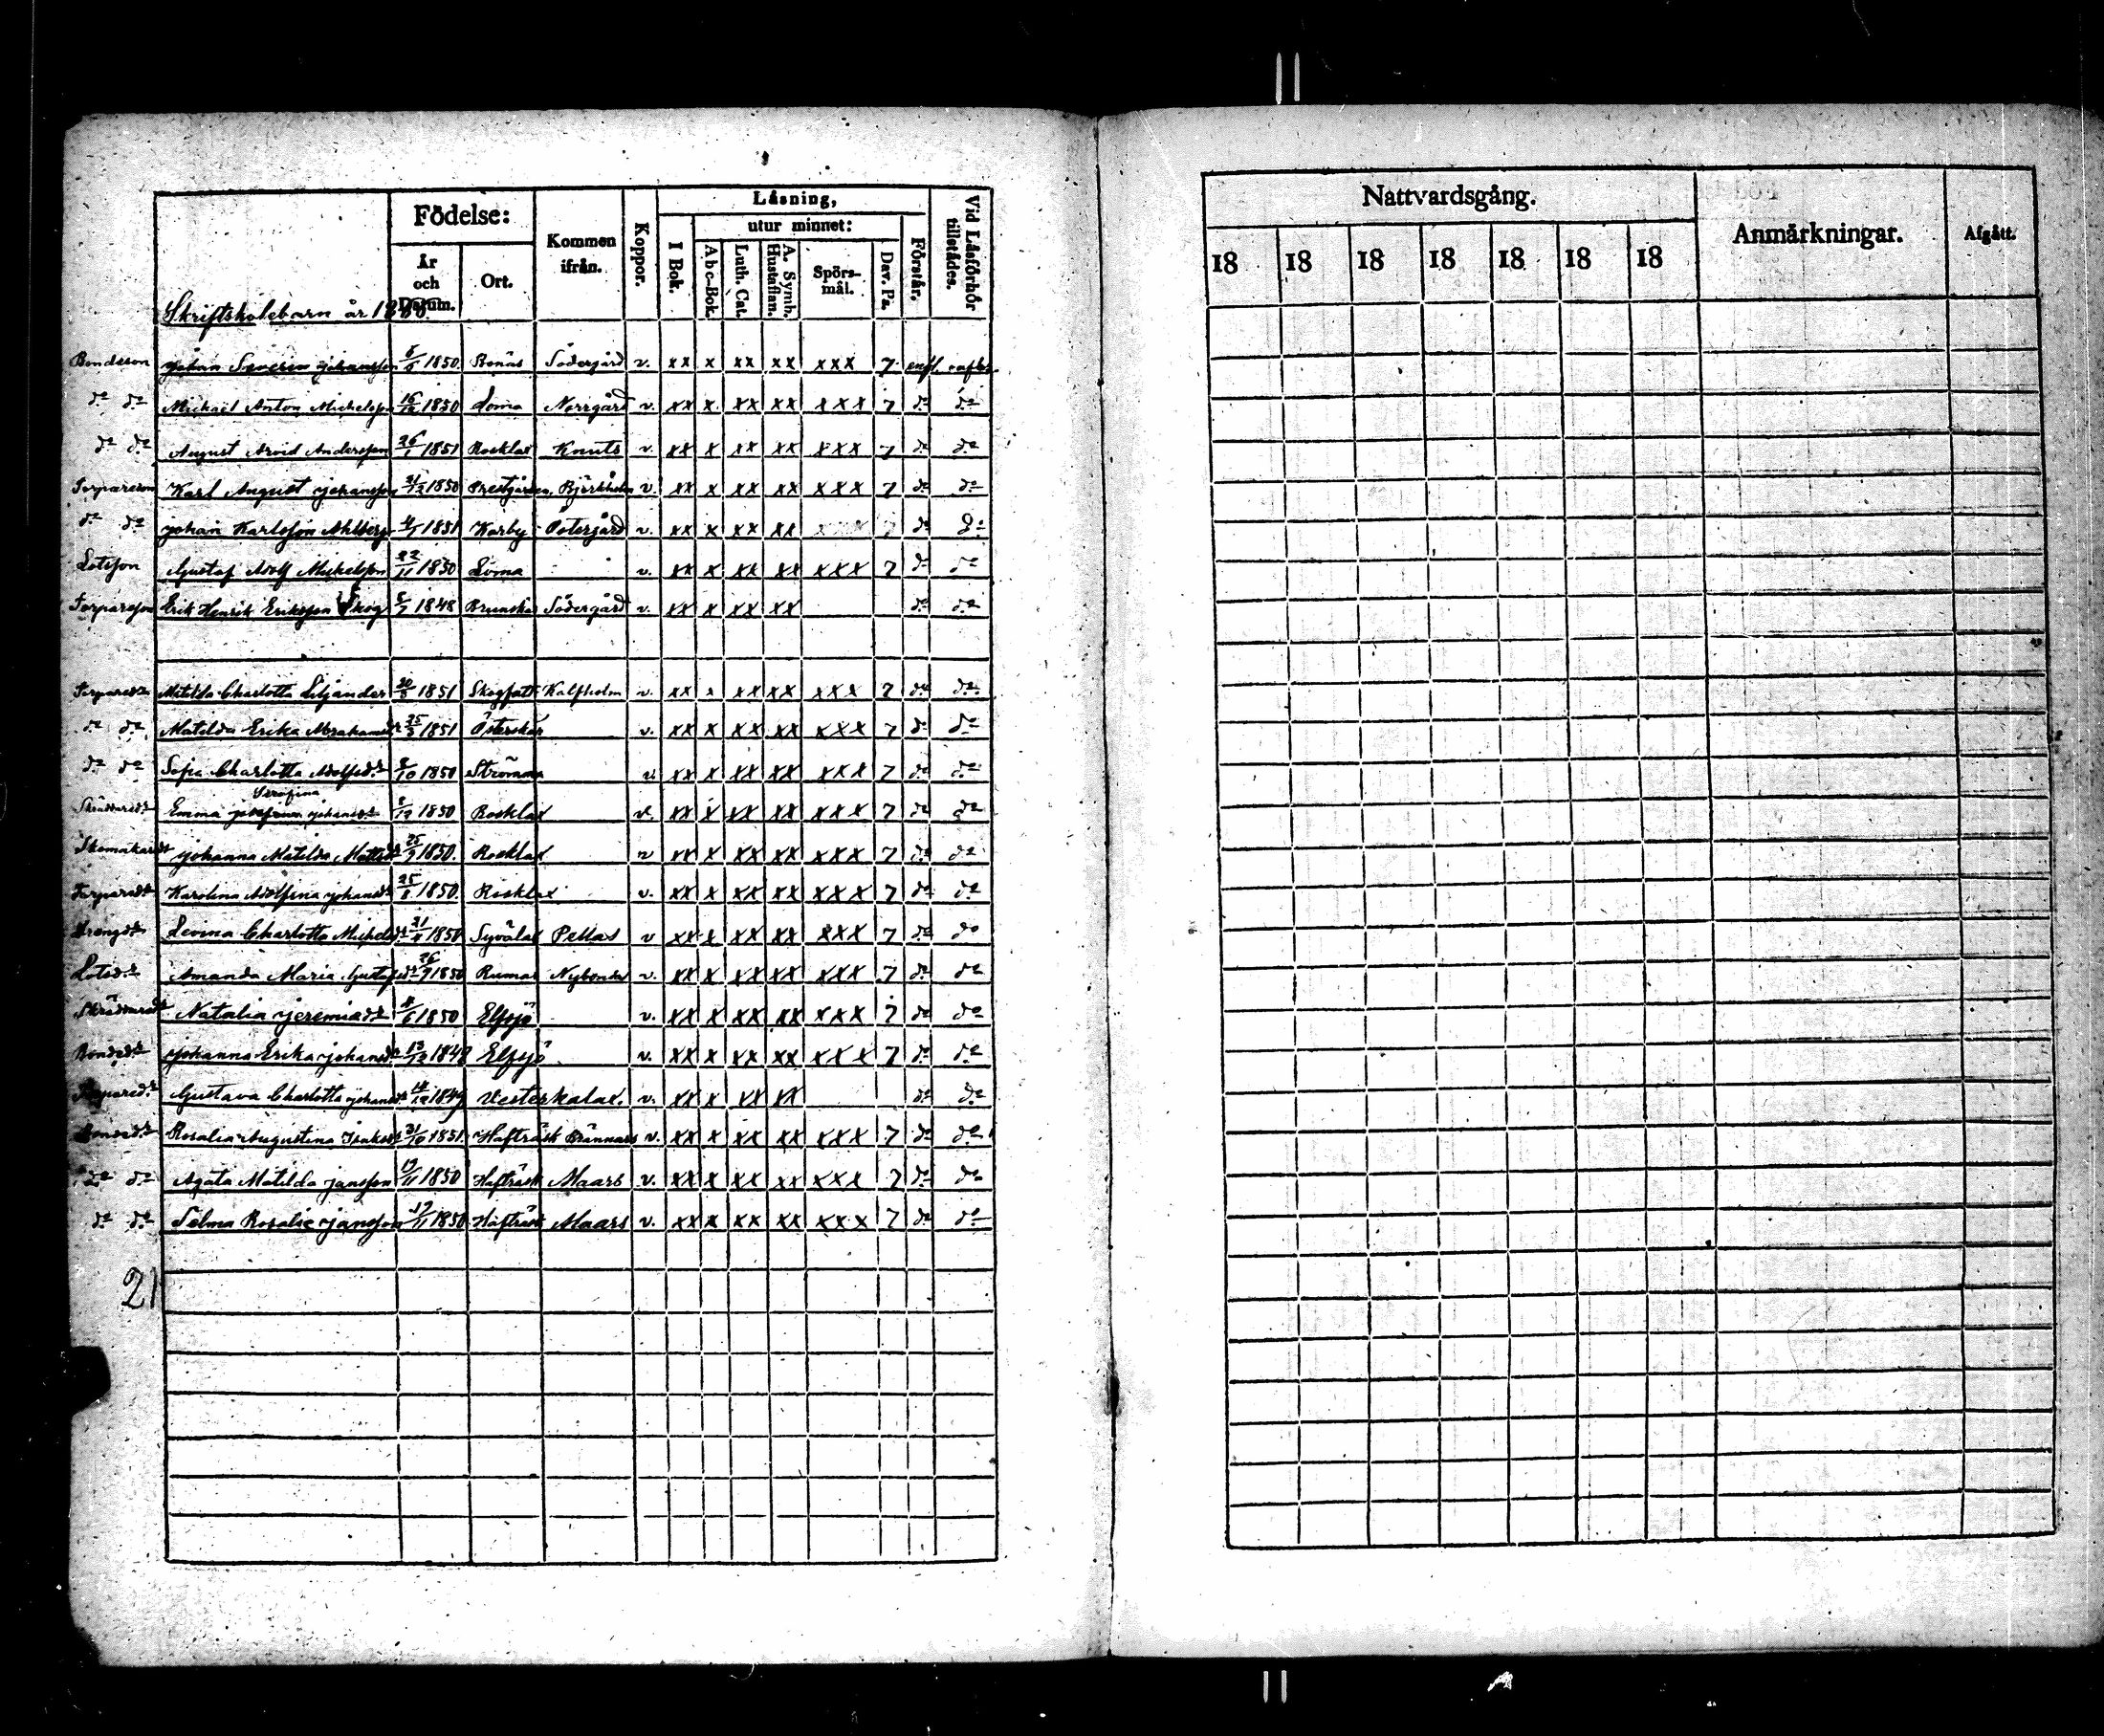 Födelse:
År och Datum.
Ort.
Kommen ifrån.
Koppor.
Läsning,
I Bok.
utur minnet:
Abc-Bok.
Luth. Cat.
A. Symb. Hustaflan.
Spörsmål.
Dav. Ps.
Förstår.
Vid Läsförhör tillstädes.
Skriftskolebarn år 18
Bondeson Johan Severin Johansson 1850. Bonäs Södergård v. xx x xx xx xxx 7
do do Mickael Anton Mickelsson 16/12 1850 Loma Norrgård v. xx x xx xx xxx 7 do do
do do August Arvid Andersson 26/1 1851 Rosklax Knuts v. xx x xx xx xxx 7 do do
Torpareson Karl August Johansson 31/12 1850 Prestgården, Björkholm v. xx x xx xx xxx 7 do do
do do Johan Karlsson Ahlberg 1851 Karby Östergård v. xx x xx xx xxx 7 do do
Lotsson Gustaf Adolf Mickelsson 22/11 1850 Loma v. xx x xx xx xxx 7 do do
Torparson Erik Henrik Eriksson Skog 1848 Brunskär Södergård v. xx x xx xx do do
Torparedr Matilda Charlotta Liljander 1851 Kalfholm v. xx x xx xx xxx 7 do do
do do Matilda Erika Abrahamsdr 25/3 1851 Österskär v. xx x xx xx xxx 7 do do
do do Sofia Charlotta Adolfsdr /10 1850 Strömma v. xx x xx xx xxx 7 do do
Serafina
Skräddaredr Emma Johansdr /12 1850 Rosklax v. xx x xx xx xxx 7 do do
Skomakaredr Johanna Matilda Mattsdr 25/9 1850. Rosklax v xx x xx xx xxx 7 do do
Torparedr Karolina Adolfina Johansdr 25/ 1850. Rosklax v. xx x xx xx xxx 7 do do
Drengdr Levina Charlotta Mickelsdr 21/ 1850 Syvälax Pellas v xx x xx xx xxx 7 do do
Lotsdr Amanda Maria Gustafsdr 26/9 1850 Rumar Nybonda v. xx x xx xx xxx 7 do do
Skräddaredr Natalia Jeremiadr /6 1850 Elfsjö v. xx x xx xx xxx 7 do do
Bondedr Johanna Erika Johansdr 13/12 1848 Elfsjö v. xx x xx xx xxx 7 do do
Torparedr Gustava Charlotta Johansdr 14/12 1849 Vesterkalax. v. xx x xx xx do do
Bondedr Rosalia Augustina Isaksdr 31/10 1851. Hafträsk Brännars v. xx x xx xx xxx 7 do do
do do Agata Matilda Jansson 19/11 1850 Hafträsk Maars v. xx x xx xx xxx 7 do do
do do Selma Rosalie Jansson 19/11 1850 Hafträsk Maars v. xx x xx xx xxx 7 do do
21
Nattvardsgång.
18 18 18 18 18 18 18
Anmärkningar.
Afgått.